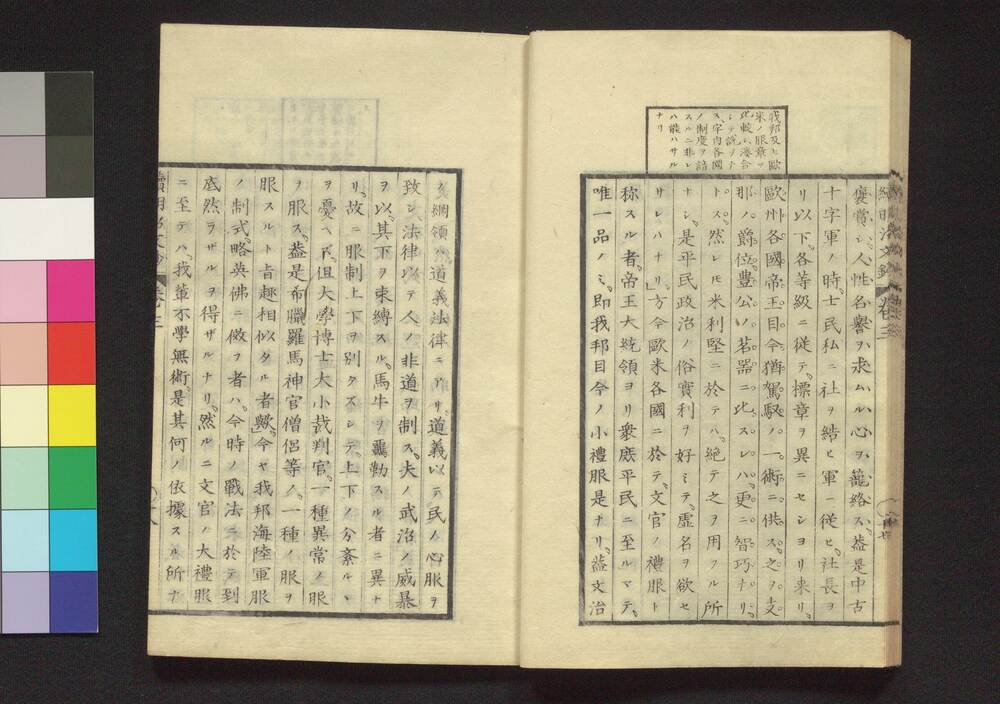 我邦及ヒ歐
米ノ服章ヲ
比較シ湊合
シテ説ヲナ
ス宇内各國
ノ制度ヲ諳
スルニ非レ
ハ能ハサル
ナリ
續明治文鈔 卷三
褒賞シ、人性名譽ヲ求ムル心ヲ籠絡ス、蓋是中古
十字軍ノ時。士民私ニ社ヲ結ヒ軍ニ従ヒ。社長ヲ
リ以下。各等級ニ従テ。標章ヲ異ニセシヨリ来リ。
歐州各國帝王目今猶駕馭ノ一術ニ供ス。之ヲ支
那ノ爵位。豊公ノ茗器ニ比スレハ。更ニ智巧ナリ。
トス。然レモ米利堅ニ於テハ。絶テ之ヲ用フル所
ナシ。是平民政治ノ俗實利ヲ好ミテ。虚名ヲ欲セ
サレハナリ。」方今歐米各國ニ於テ。文官ノ禮服ト
称スル者。帝王大統領ヨリ衆庶平民ニ至ルマテ。
唯一品ノミ。即我邦目今ノ小禮服是ナリ。蓋文治
ノ綱領ハ道義法律ニアリ。道義以テ民ノ心服ヲ
致シ。法律以テ人ノ非道ヲ制ス。夫ノ武治ノ威暴
ヲ以。其下ヲ束縛スル。馬牛ヲ羈勒スル者ニ異ナ
リ。故ニ服制上下ヲ別タズシテ。上下ノ分紊ルヽ
ヲ憂ヘズ。但大學博士大小裁判官。一種異常ノ服
ヲ服ス。蓋是希臘羅馬神官僧侶等ノ。一種ノ服ヲ
服スルト旨趣相似タル者歟。」今ヤ我邦海陸軍服
ノ制式。略英佛ニ倣フ者ハ。今時ノ戰法ニ於テ到
底然ラザルヲ得ザルナリ。然ルニ文官ノ大禮服
ニ至テハ。我輩不學無術。是其何ノ依據スル所ナ
續明治文鈔 卷三